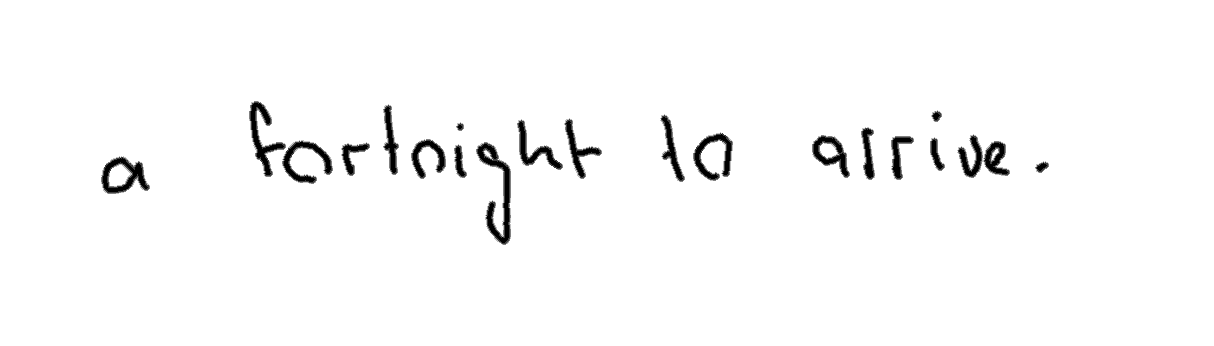 a fortnight to arrive.